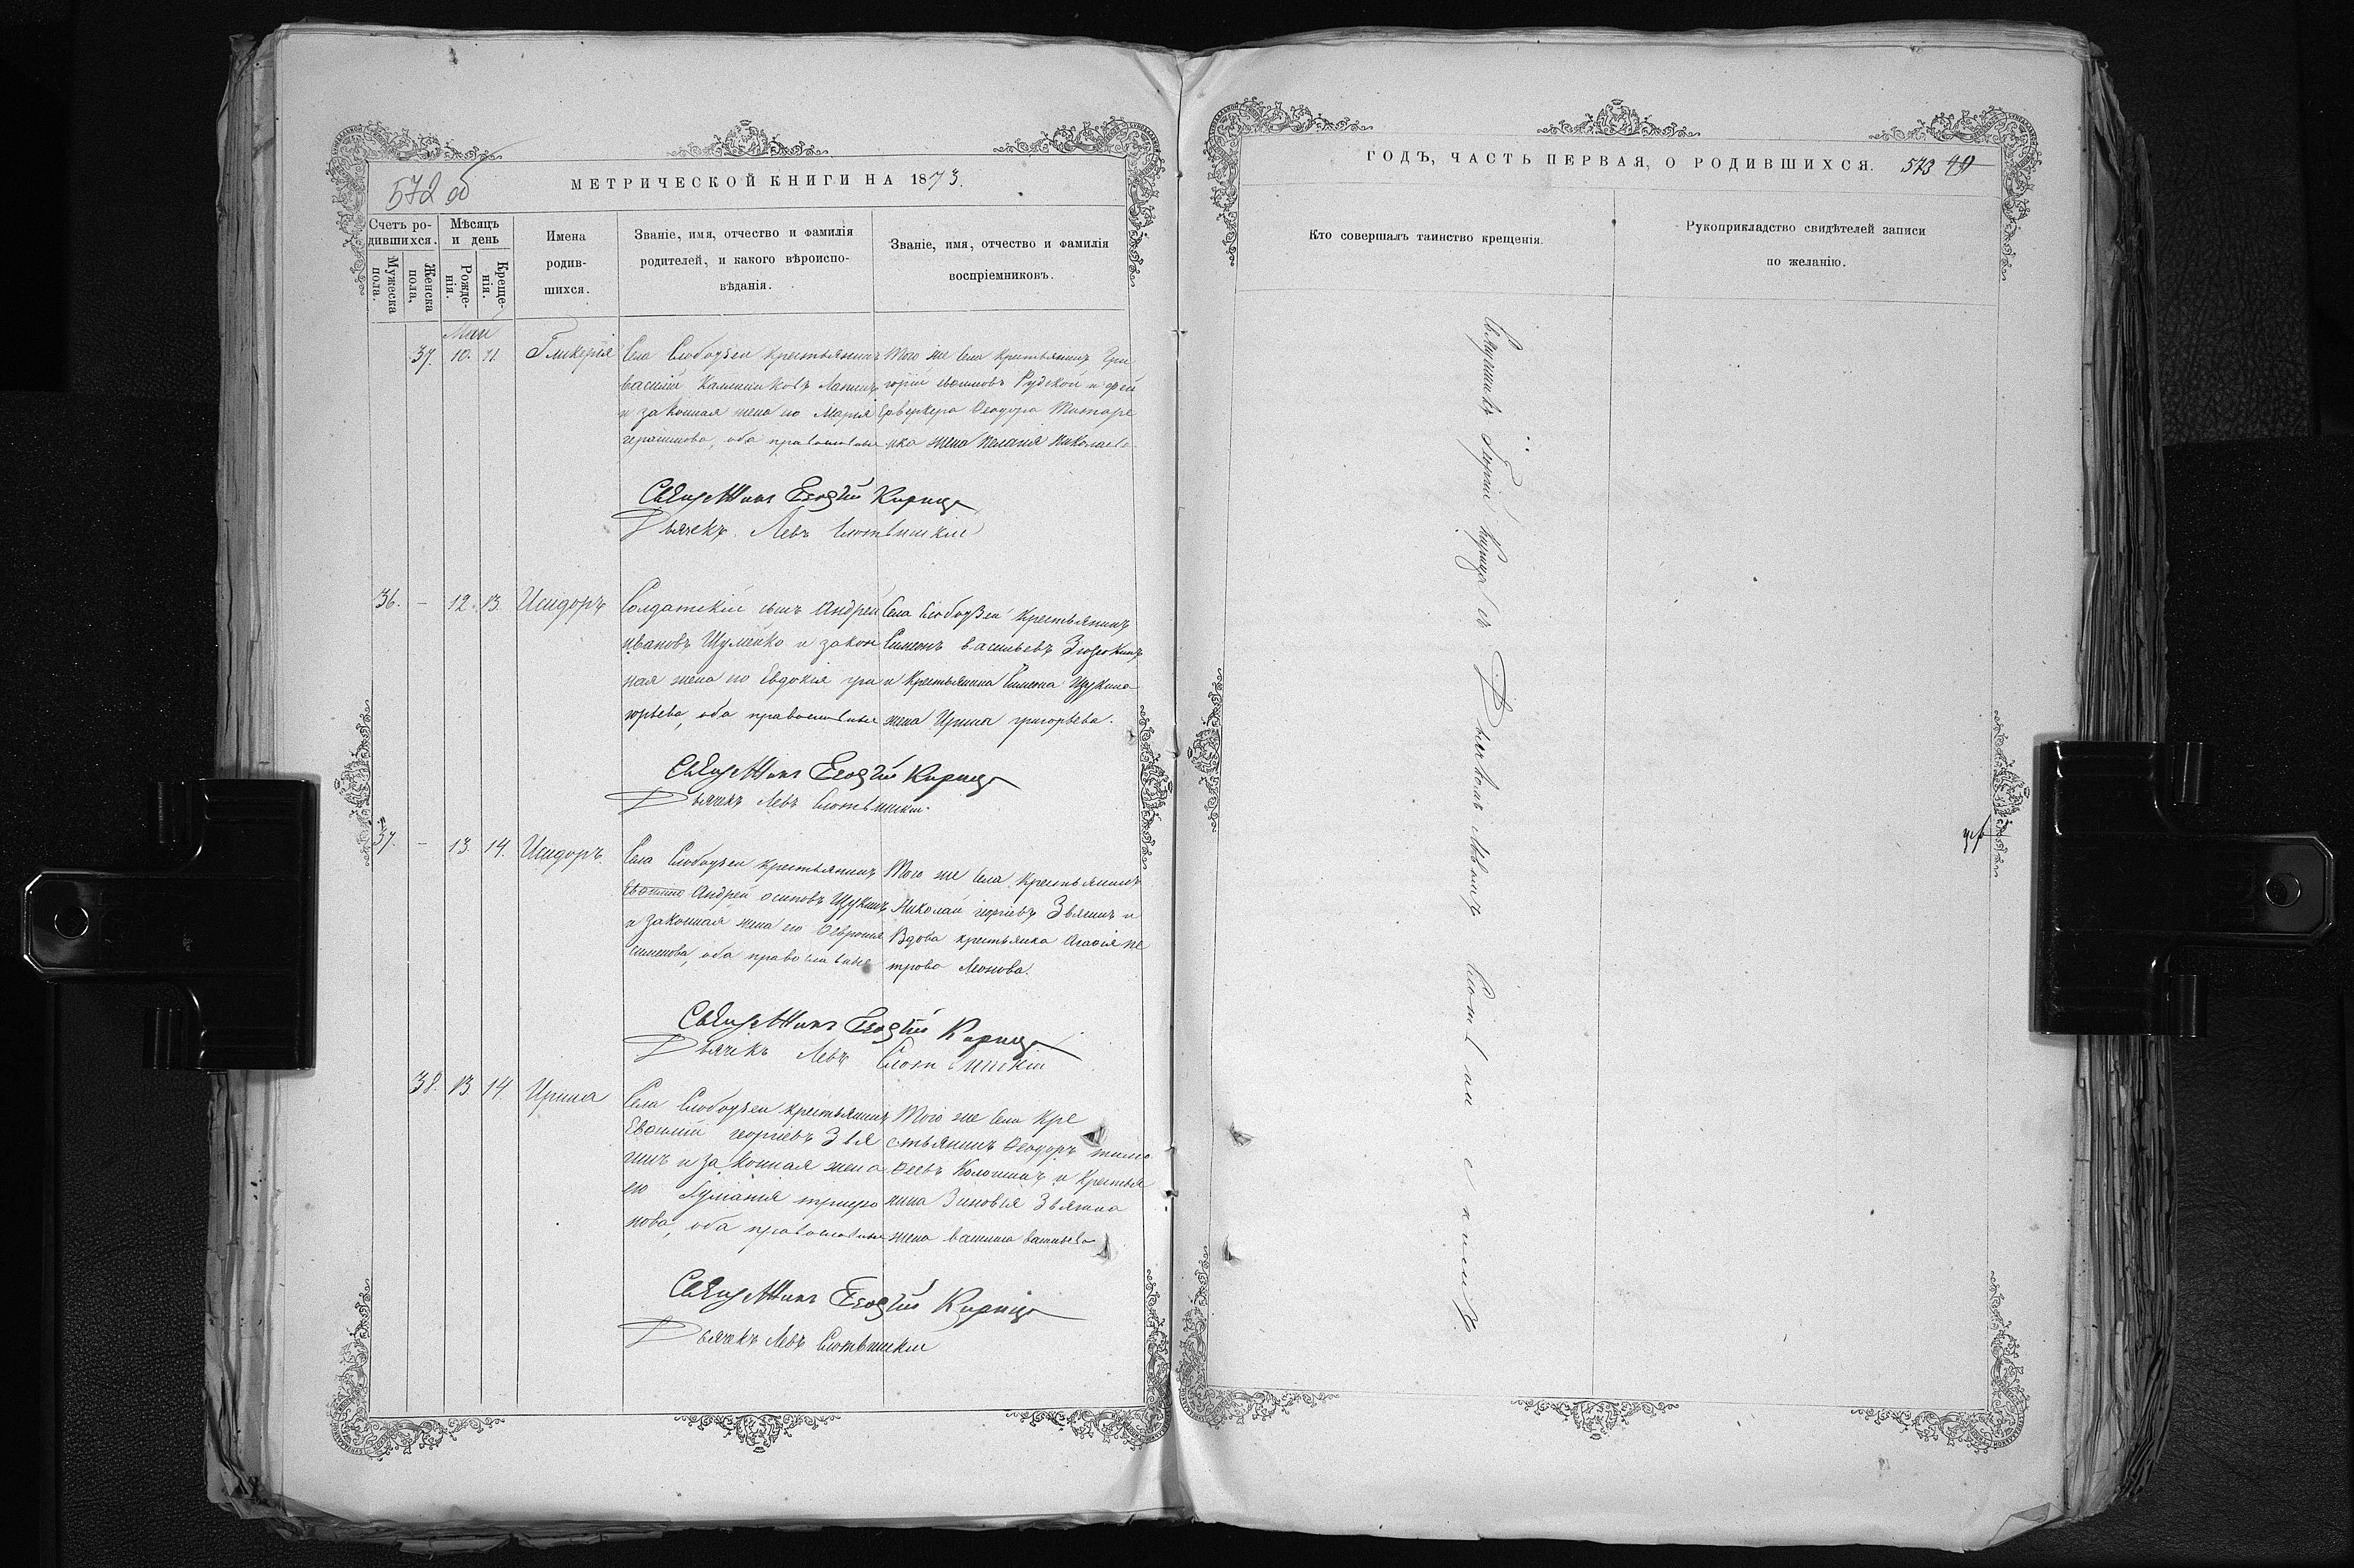 572 об
МЕТРИЧЕСКОЙ КНИГИ НА 1873.
Счетъ ро-
дившихся.
Мужеска
пола.
Женска
пола,
Мѣсяцъ
и день
Рожде-
нія.
Креще-
нія.
Имена
родив-
шихся.
Званіе, имя, отчество и фамилія
родителей, и какого вѣроиспо-
вѣданія.
Званіе, имя, отчество и фамилія
воспріемниковъ.
Май
37. 10. 11. Гликерія
Села Слободзеи крестьянинъ
василій
и законная жена его Марія
герасимова, оба православные
Того же Села крестьянинъ Гри
горій Рудской и
Ѳеодора Титаре
нка жена Пелагія Николаева
Священникъ Георгій Кирица
Дьячекъ Левъ Слотвинскій
36. – 12. 13. Исидоръ
Солдатскій сынъ Андрей
ивановъ Шумейко и закон
ная жена его Евдокія гри
горьева, оба православные
Села Слободзеи крестьянинъ
Симеонъ васильевъ
и крестьянина Симеона Щукина
жена Ирина григорьева.
Священникъ Георгій Кирица
Дьячекъ Левъ Слотвинскій
37. – 13. 14. Исидоръ.
Села Слободзеи крестьянинъ
Андрей осиповъ Щукинъ
и законная жена его Февронія
симеонова, оба православные
Того же Села крестьянинъ
Николай георгіевъ Звягинъ и
Вдова крестьянка Агафія пе
трова Леонова.
Священникъ Георгій Кирица
Дьячекъ Левъ Слотвинскій
38. 13 14. Ирина
Села Слободзеи крестьянинъ
Евфимій георгіевъ Звя
гинъ и законная жена
его трифо
нова, оба православные
Того же Села кре
стьянинъ Ѳеодоръ тимо
Ѳеевъ и крестья
нина Зиновія Звягина
жена васильева
Священникъ Георгій Кирица
Дьячекъ Левъ Слотвинскій
ГОДЪ, ЧАСТЬ ПЕРВАЯ, О РОДИВШИХСЯ. 573
Кто совершалъ таинство крещенія.
Рукоприкладство свидѣтелей записи
по желанію.
Священникъ Георгій Кирица съ Дьячкомъ Львомъ Слотвинскимъ